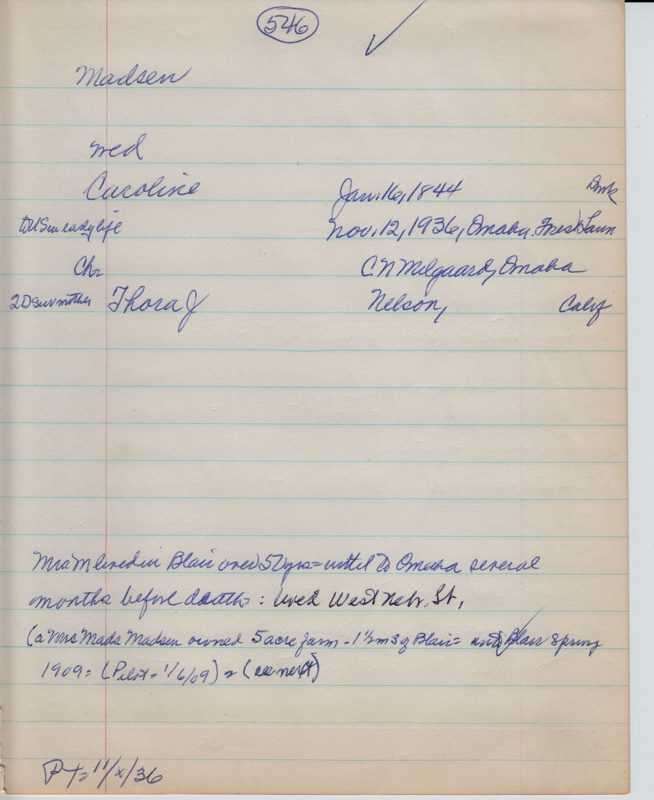 546
Madsen
wed
Caroline Jan. 16, 1844 Dmk
to US in early life Nov. 12, 1936, Omaha. Forest Lawn
Chr C N Melgaard, Omaha
2 D surv mother Thora J Nelson, Calif
Mrs M lived in Blair over 50 yrs = until to Omaha several
months before death : lived West Nebr. St.,
(a Mrs Mads Madsen owned 5 acre farm - 1½ m S of Blair = Blair Spring
1909 = (Pilot - 1/6/09) = (see next)
PT = 11/x/36